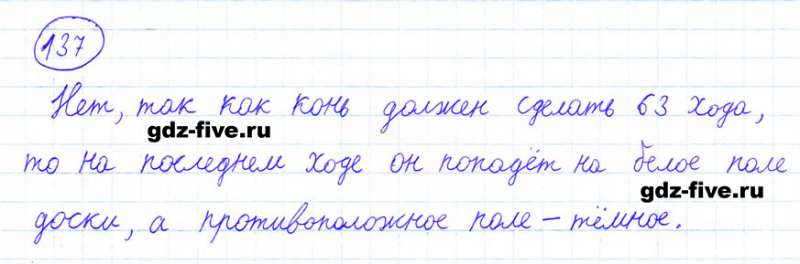 137
Нет, так как конь должен сделать 63 хода,
gdz-five.ru
то на последнем ходе он попадёт на белое поле
gdz-five.ru
доски, а противоположное поле – тёмное.